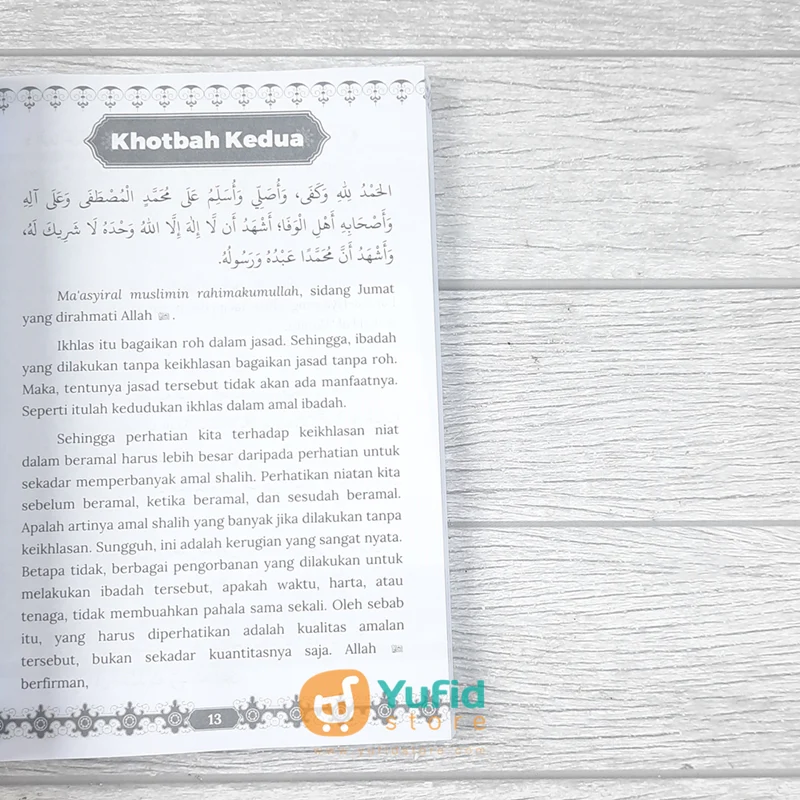 Khotbah Kedua
الحَمْدُ لِلهِ وَكَفَى، وَأُصَلِّي وَأُسَلِّمُ عَلَى مُحَمَّدٍ الْمُصْطَفَى وَعَلَى آلِهِ
وَأَصْحَابِهِ أَهْلِ الْوَفَا؛ أَشْهَدُ أَن لَّا إِلٰهَ إِلَّا اللهُ وَحْدَهُ لَا شَرِيكَ لَهُ،
وَأَشْهَدُ أَنَّ مُحَمَّدًا عَبْدُهُ وَرَسُولُهُ.
Ma'asyiral muslimin rahimakumullah, sidang Jumat
yang dirahmati Allah .
Ikhlas itu bagaikan roh dalam jasad. Sehingga, ibadah
yang dilakukan tanpa keikhlasan bagaikan jasad tanpa roh.
Maka, tentunya jasad tersebut tidak akan ada manfaatnya.
Seperti itulah kedudukan ikhlas dalam amal ibadah.
Sehingga perhatian kita terhadap keikhlasan niat
dalam beramal harus lebih besar daripada perhatian untuk
sekadar memperbanyak amal shalih. Perhatikan niatan kita
sebelum beramal, ketika beramal, dan sesudah beramal.
Apalah artinya amal shalih yang banyak jika dilakukan tanpa
keikhlasan. Sungguh, ini adalah kerugian yang sangat nyata.
Betapa tidak, berbagai pengorbanan yang dilakukan untuk
melakukan ibadah tersebut, apakah waktu, harta, atau
tenaga, tidak membuahkan pahala sama sekali. Oleh sebab
itu, yang harus diperhatikan adalah kualitas amalan
tersebut, bukan sekadar kuantitasnya saja. Allah
berfirman,
13
Yufid
store